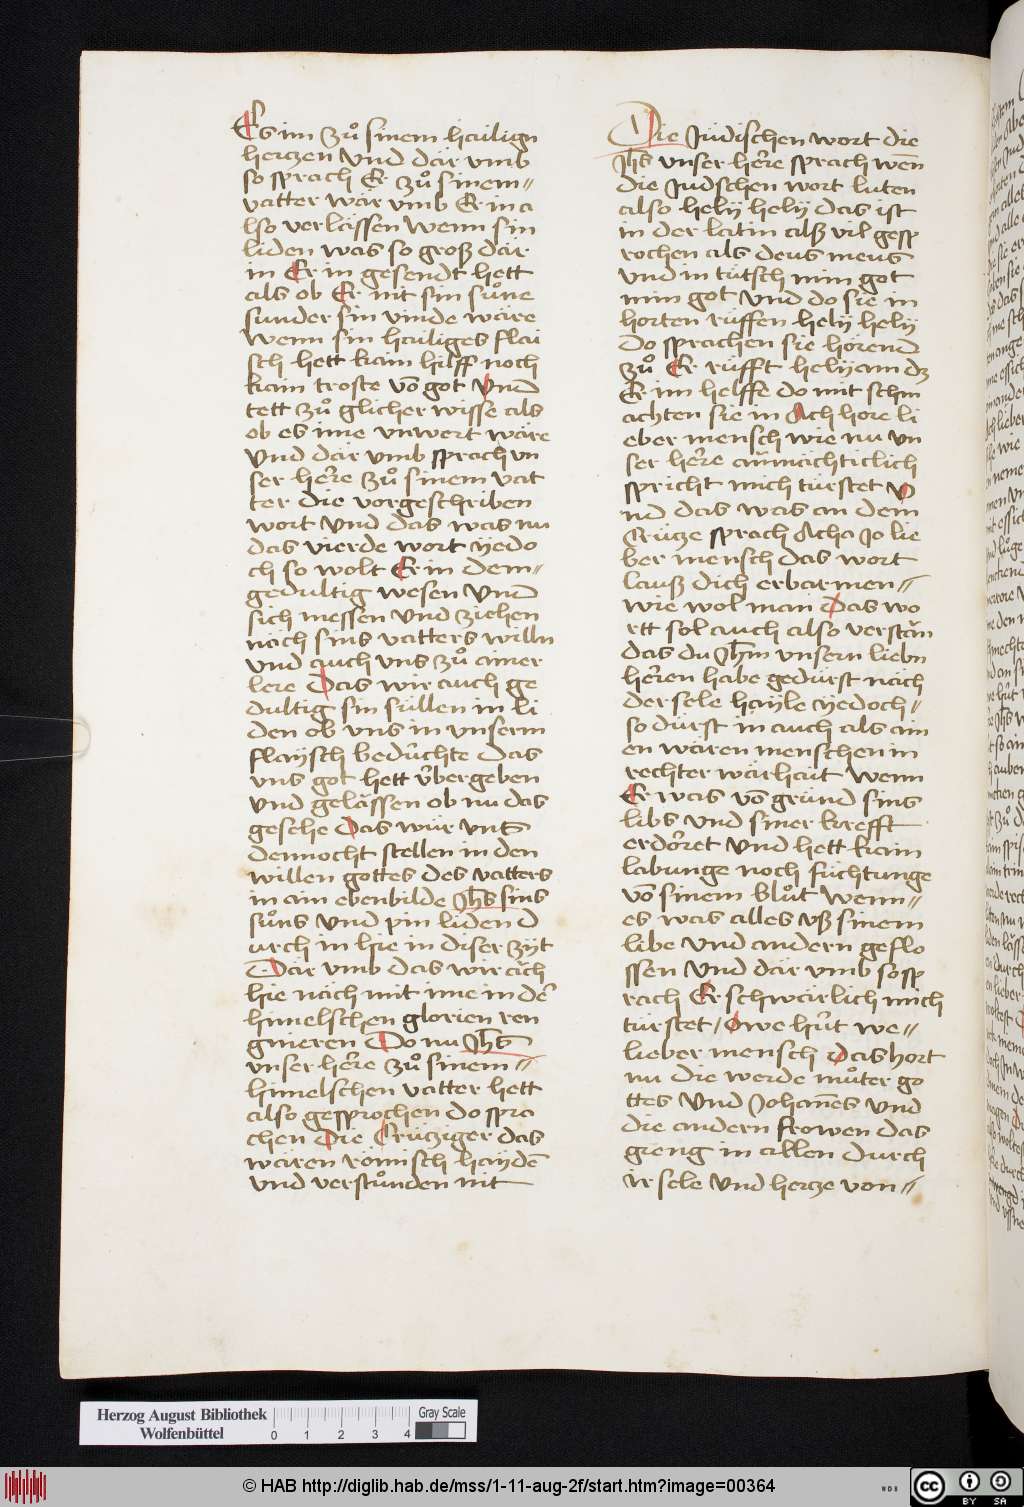 Es im zuͦ sinem hailign
hertzen vnd dār vmb
so sprach Er zuͦ sinem=
vatter wār vmb Er in a
lso verlāssen wenn sin
liden was so groß dār
in Er in gesendt hett
als ob Er nit sin suͦne
sunder sin vinde wāre
wenn sin hailiges flai
sch hett kain hilff noch
kain troste võ got Vnnd
tett zuͦ glicher wisse als
ob es ime vnwert wāre
Vnd dār vmb sprach vn
ser here zuͦ sinem vat
ter die vorgeschriben
wort Vnd das was nu
das vierde wort yedo
ch so wolt Er in dem=
gedultig wesen Vnnd
sich messen Vnd ziehen
nāch sins vatters willn
vnd auch vns zuͦ ainer
lere Das wir auch ge
dultig sin süllen in li
den ob vns in vnserm
flaysch bedüchte das
vns got hett v̈bergeben
Vnd gelāssen ob nu das
gesche Das wür vns
dennocht stellen in den
willen gottes des vatters
in ain ebenbilde Jhs̄ sins
suͦns Vnd pin liden d
urch in hie in diser zÿt
Dār vmb das wir aüch
hie nāch mit ime in der
himelschen glorien ren
gnieren Do nu Jhs̄
vnser here zuͦ sinem=
himelschen vatter hett
also gesprochen do spra
chen Die Crüziger das
wāren römisch haydē
vnd verstuͦnden nit
Die Jüdischen wort die
Jhs̄ vnser here sprach wēn
die Judschen wort luten
also helÿ helÿ das ist
in der latin alß vil gesp
rochen als deus meus
vnd in tütsch min got
min got Vnd do sie in
horten rüffen helÿ helÿ
Do sprachen sie hörend
zuͦ Er rüfft helÿam dz
Er im helffe do mit schm
achten sie in Ach hore li
eber mensch wie nu vn
ser here aümāchticlich
spricht mich türstet V
nd das was an dem
Crütze sprach Acha Jo lie
ber mensch das wort
lauß dich erbarmen=
wie wol man Das wo
rtt sol auch also verstān
das du Jhm̄ vnsern liebn
heren habe gedürst nāch
der sele hayle yedoch=
so dürst in auch als ain
en wāren menschen in
rechter wārhait Wenn
Er was võ gründ sins
libs Vnd siner krefft
erdöret Vnd hett kain
labunge noch füchtunge
võ sinem bluͦt Wenn=
es was alles vß sinem
libe Vnd andern geflo
ssen Vnd dār vmb sosp
rach Er schwārlich mich
türstet / Owe hüt we=
lieber mensch Das hort
nu die werde muͦter go
ttes Vnd Johan̄es Vnd
die andern frowen das
gieng in allen durch
ir sele Vnd hertze von=
Herzog August Bibliothek
Wolfenbüttel
0 1 2 3 4
Gray Scale
© HAB http://diglib.hab.de/mss/1-11-aug-2f/start.htm?image=00364
WDB
cc BY SA